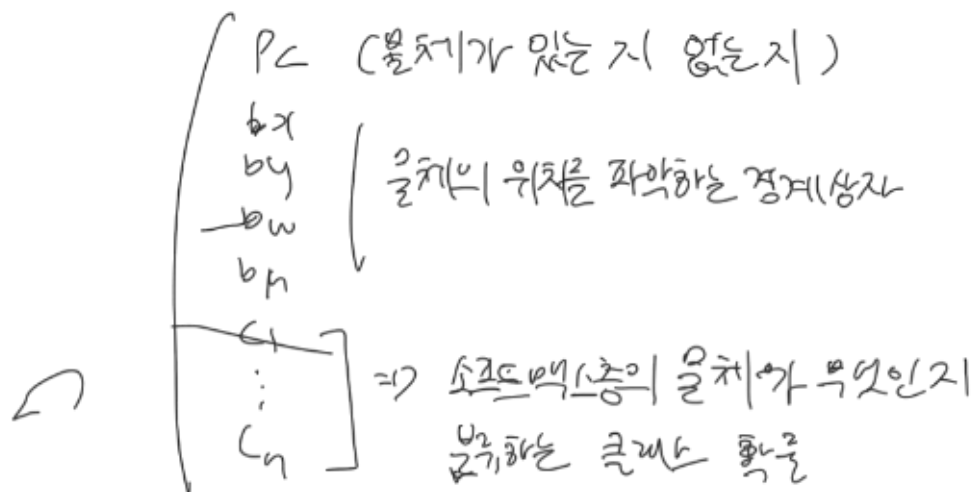 Pc (물체가 있는 지 없는 지)
bx
by
물체의 위치를 파악하는 경계상자
bw
bh
C1
⋮
=> 소프트맥스층의 물체가 무엇인지
Cn
분류하는 클래스 확률